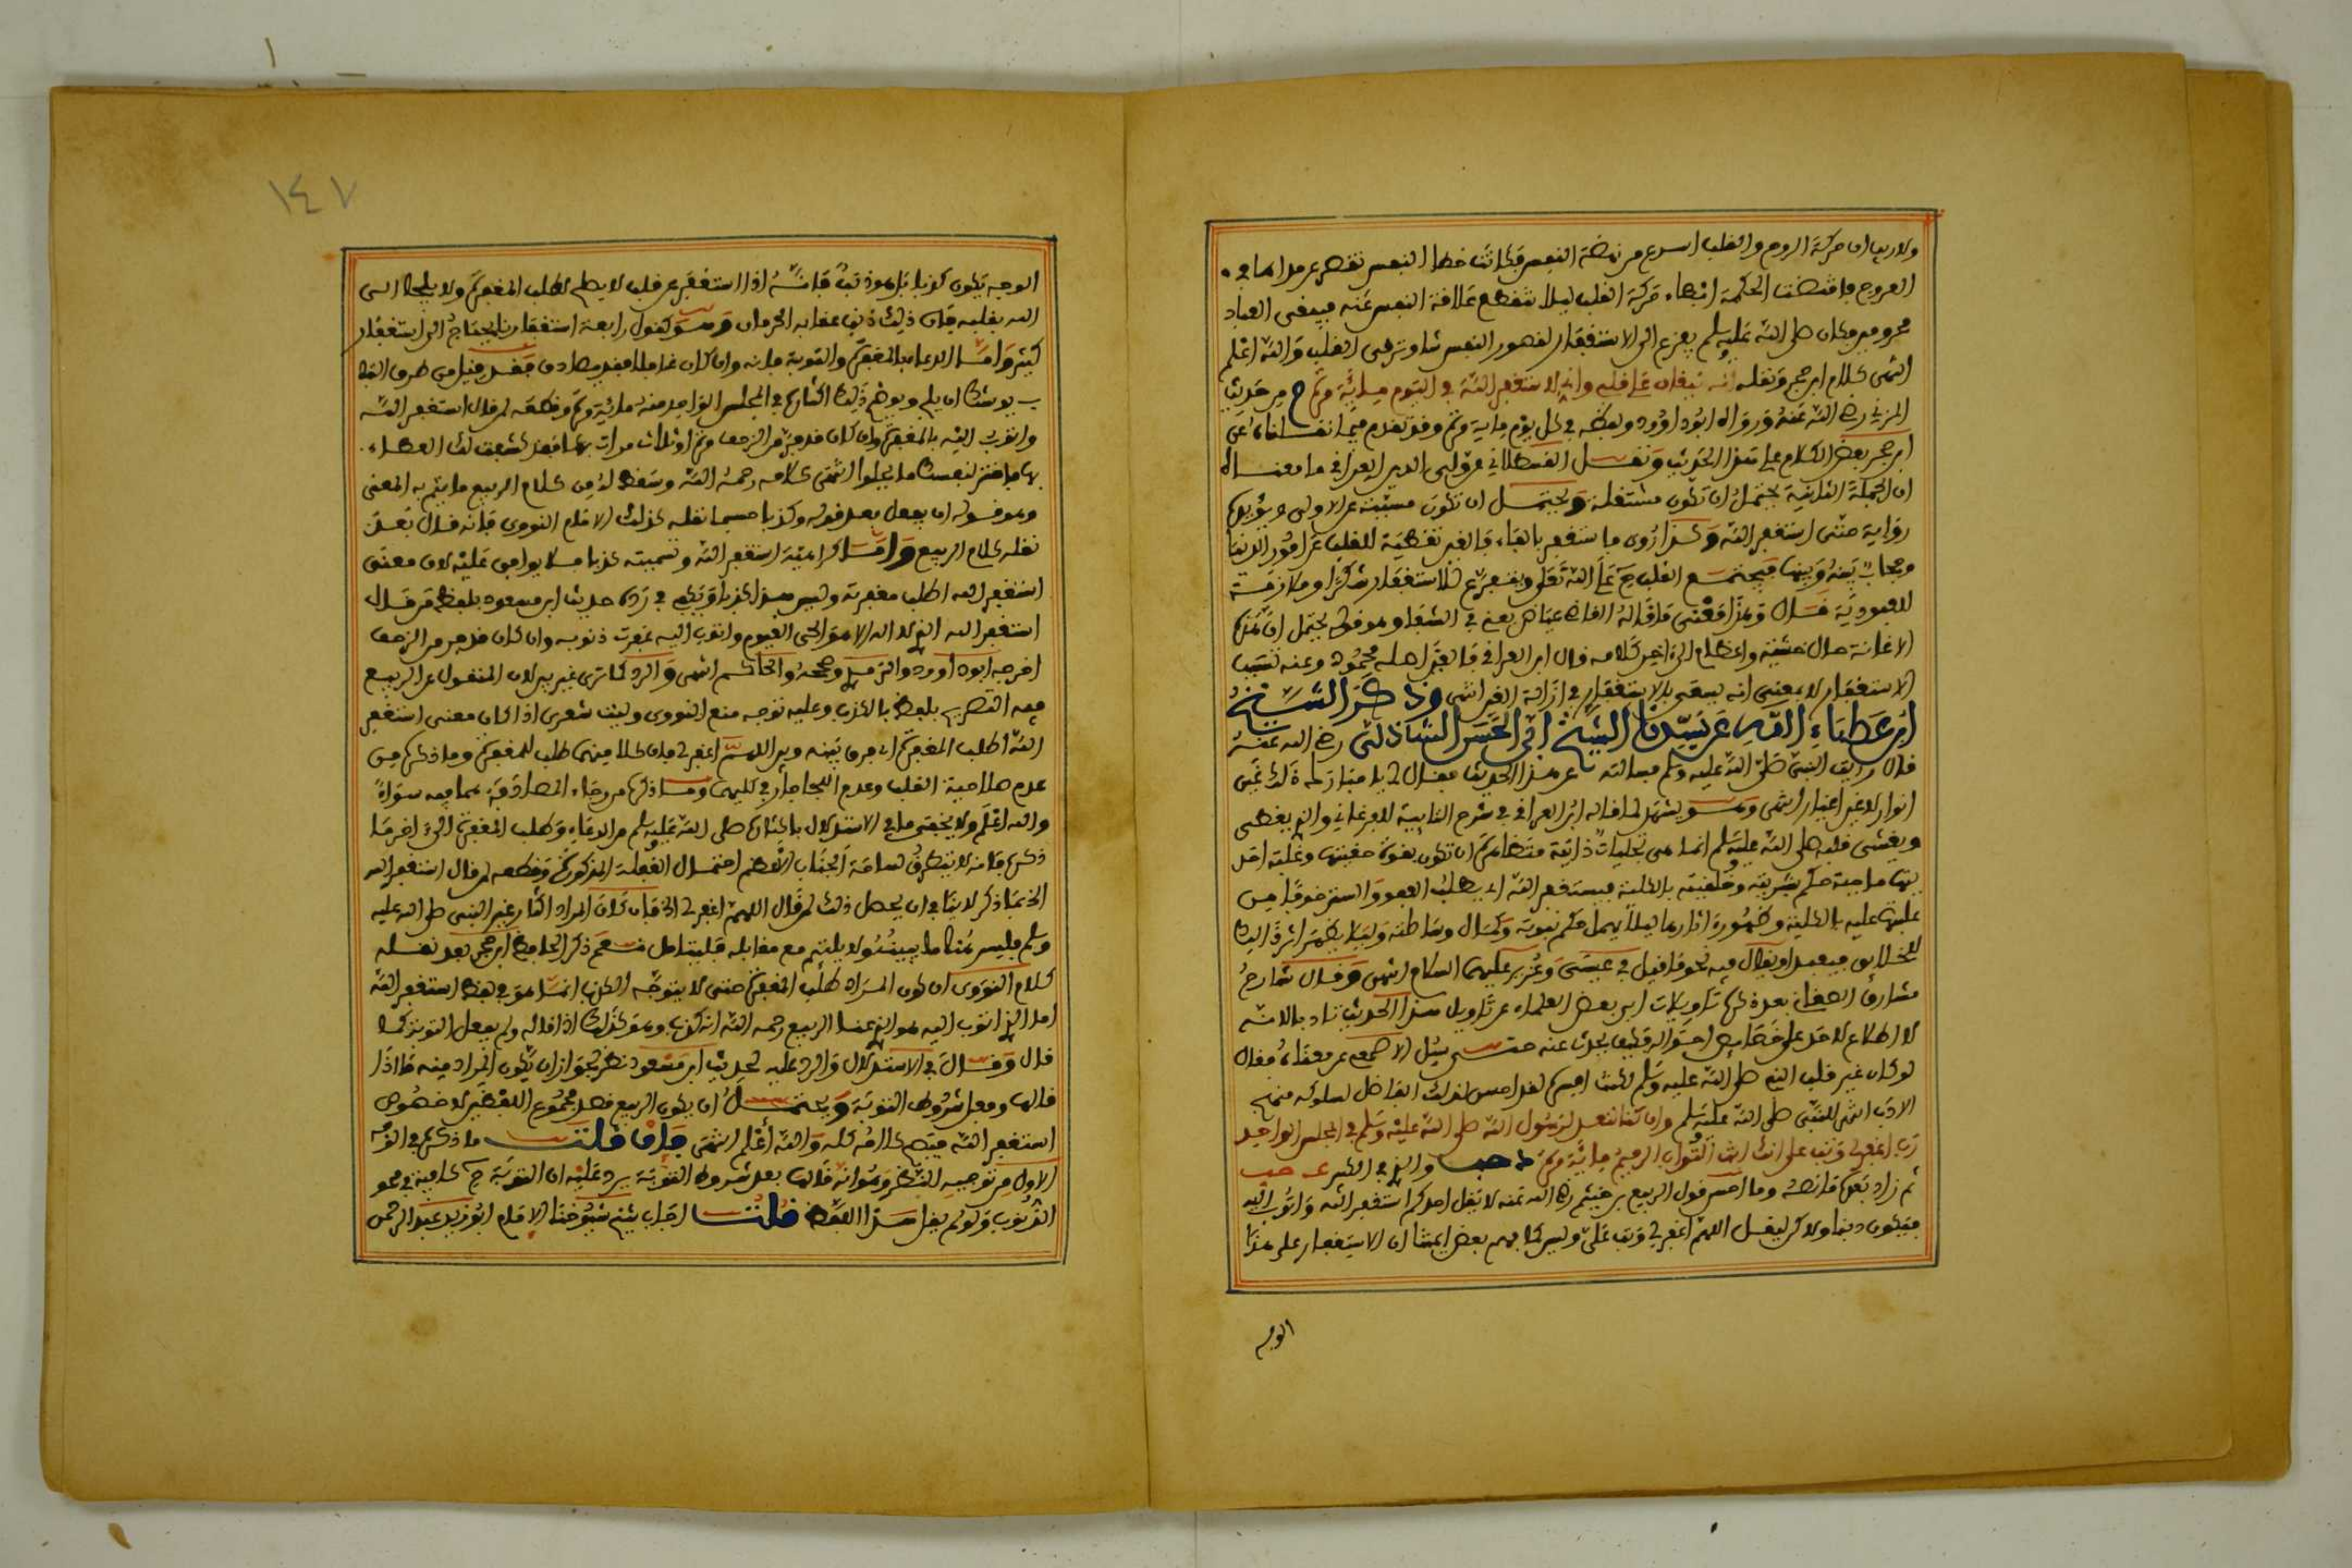 ولا ريب ان حركة الروح والقلب اسرع من نهضة النفس فكانت خطا النفس تقصر عن مداهما في
العروج فاقتضت الحكمة ابطاء حركة القلب ليلا تنقطع علاقة النفس عنه فيبقى العباد
محرومين فكان صلى الله عليه وسلم يفزع الى الاستغفار لقصور النفس شاو ترقى القلب والله اعلم
انتهى كلام ابن حجر ونقله انه ليغان على قلبي واني لاستغفر الله في اليوم مائة مرة م من حديث
المزني رضي الله عنه ورواه ابو داوود ولفظه في كل يوم مائة مرة وقد تقدم فيما نقلناه عن
ابن حجر بعض الكلام على هذا الحديث ونقل القسطلاني عن ولي الدين العراقي ما معناه
ان الجملة الثانية يحتمل ان تكون مستقلة ويحتمل ان تكون مسببة عن الاولى ويؤيده
رواية حتى استغفر الله وكذا روى فاستغفر بالفاء فالغين تغطية للقلب عن امور الدنيا
وحجاب بينه وبينها فيجتمع القلب ح على الله تعالى ويتفرغ للاستغفار شكرا وملازمة
للعبودية قال وهذا معنى ما قاله القاضي عياض يعني في الشفا وهو قوله يحتمل ان هذه
الاغانة حال خشية واعظام الى اخر كلامه قال ابن العراقي فالغين اصله محمود وعنه تسبب
الاستغفار لا بمعنى انه يسعى بالاستغفار في ازالة الغين انتهى وذكر الشيخ
ابن عطاء الله عن سيدنا الشيخ ابي الحسن الشاذلي رضي الله عنه
قال رايت النبي صلى الله عليه وسلم فسالته عن هذا الحديث فقال لي يا مبارك ذلك غين
انوار لا غين اغيار انتهى وهو يشهد لما قاله ابن العراقي في شرح التايية للفرغاني والذي يغطى
ويغشى قلبه صلى الله عليه وسلم انما هي تجليات ذاتية متظاهرة ان تكون بقوة حقيتها وغلبة احد
يتها ماحية حكم بشريته وخلقيته بالكلية فيستغفر الله اي يطلب العفو والستر خوفا من
غلبتها عليه بالكلية وظهوره اثارها ليلا يهمل حكم نبوته وكمال وساطته وليلا يظهر اثر ذلك
للخلائق فيعبد او يقال فيه نحو ما قيل في عيسى وعزير عليهما السلام انتهى وقال شارح
مشارق الصغاني بعد ذكره تاويلات ابى بعض العلماء عن تاويل هذا الحديث تادبا لانه
لا اطلاع لاحد على خصايص احواله فكيف يحدث عنه حتى سئل الاصمعي عن معناه فقال
لو كان غير قلب النبي صلى الله عليه وسلم لكنت افسره لقد احسن لذلك الفاضل لسلوكه منهج
الادب انتهى للنبي صلى الله عليه وسلم وان كنا لنعد لرسول الله صلى الله عليه وسلم في المجلس الواحد
رب اغفر لي وتب علي انك انت التواب الرحيم مائة مرة د حب والاذكار للنووي حب
ثم زاد بعده فانصه وما احسن قول الربيع بن خيثم رضي الله عنه لا يقل احدكم استغفر الله واتوب اليه
فيكون ذنبا ولاكن ليقل اللهم اغفر لي وتب علي وليس كما فهم بعض ايمتنا ان الاستغفار على هذا
الوجه
١٤٧
الوجه يكون كذبا بل هو ذنب فانه اذا استغفر عن قلب لا يطلب المغفرة ولا يلجا الى
الله بقلبه فان ذلك ذنب عقابه الحرمان وهو كقول رابعة استغفارنا يحتاج الى استغفار
كثير واما الدعاء بالمغفرة والتوبة فانه وان كان غافلا فقد يصادف فقد قيل من طرق البا
ب يوشك ان يلج ويوضح ذلك اكثاره في المجلس الواحد منه مائة مرة وقطعه لمن قال استغفر الله
واتوب اليه بالمغفرة وان كان قد فر من الزحف مرة او ثلاث مرات فقد كشف لك الغطاء
فاختر لنفسك ما يحلوا انتهى كلامه رحمه الله وسقط له من كلام الربيع ما يتم به المعنى
وهو قوله ان يفعل بعد قوله وكذبا حسبما نقله كذلك الامام النووي فانه قال بعد
نقله كلام الربيع واما كراهية استغفر الله وتسميته كذبا فلا يوافق عليه لان معنى
استغفر الله اطلب مغفرته وليس هذا كذبا ويكفي في رده حديث ابن مسعود بلفظ من قال
استغفر الله الذي لا اله الا هو الحي القيوم واتوب اليه غفرت ذنوبه وان كان قد فر من الزحف
اخرجه ابو داوود والترمذي وصححه الحاكم انتهى والرد كما ترى غير بين لان المنقول عن الربيع
فيه التصريح بلفظ بالكذب وعليه توجه منع النووي وليت شعري اذا كان معنى استغفر
الله اطلب المغفرة اي فرق بينه وبين اللهم اغفر لي فان كلا منهما طلب للمغفرة وما ذكره من
عدم صلاحية القلب وعدم اللجا جار في كليهما وما ذكره من رجاء المصادفة فهما فيه سواء
والله اعلم ولا يخفى ما في الاستدلال باكثاره صلى الله عليه وسلم من الدعاء وطلب المغفرة الى اخر ما
ذكره فانه لا يتطرق لساحة الجناب الاعظم احتمال الغفلة المذكورة وقطعه لمن قال استغفر الله
الخ بما ذكر لا ينافي ان يحصل ذلك لمن قال اللهم اغفر لي الخ فان كان المراد اكثار غير النبي صلى الله عليه
وسلم فليس هناك ما يبينه ولا يلتيم مع مقابله فليتامل نعم ذكر الحافظ ابن حجر بعد نقله
كلام النووي ان كون المراد طلب المغفرة حتى لا يتوجه الكذب انما هو في لفظ استغفر الله
اما اتوب اليه فهو الذي عنى الربيع رحمه الله انه كذب وهو كذلك اذا قاله ولم يفعل التوبة كما
قال وقال في الاستدلال والرد عليه بحديث ابن مسعود نظر لجواز ان يكون المراد منه ما اذا
قالها وفعل شروط التوبة ويحتمل ان يكون الربيع قصد مجموع اللفظين لا خصوص
استغفر الله فيصح كلامه كله والله اعلم انتهى فان قلت ما ذكره في الوجه
الاول من توجيه النظر وهو انه قالها بعد شروط التوبة يرد عليه ان التوبة ح كافية في محو
الذنوب ولو لم يقل هذا اللفظ قلت اجاب شيخ شيوخنا الامام ابو زيد عبد الرحمن